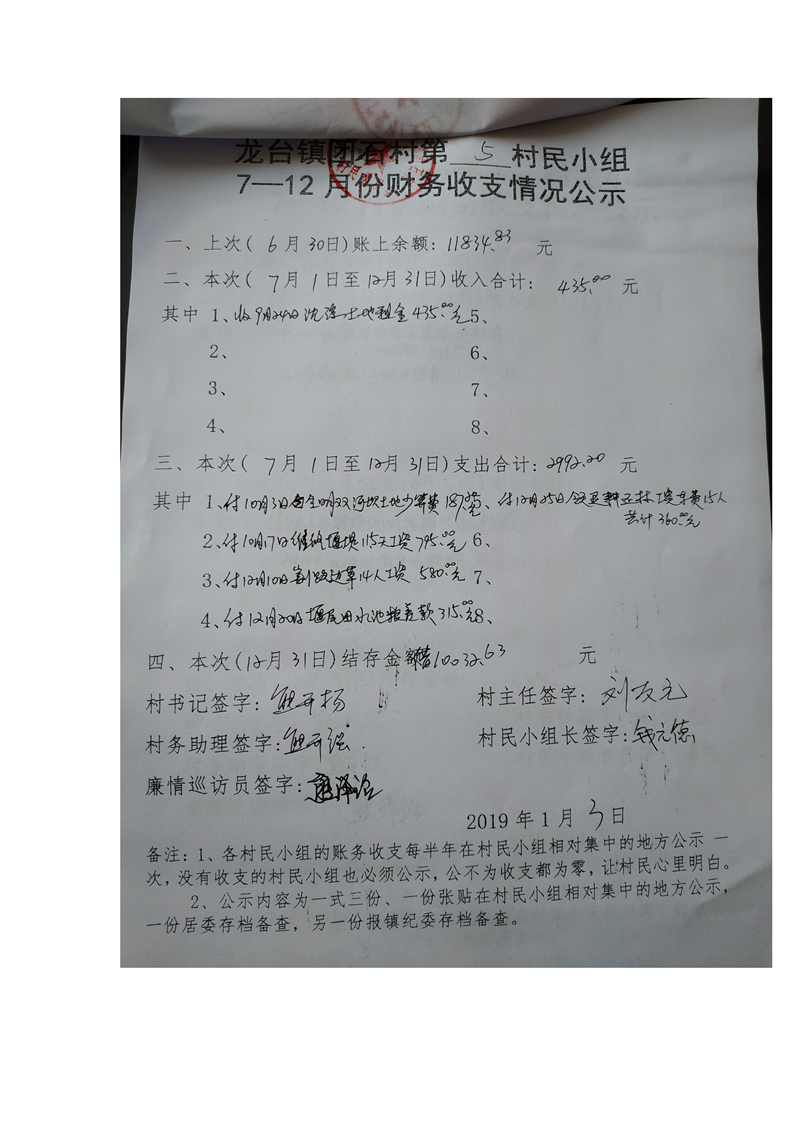 龙台镇团石村第 5 村民小组
7—12 月份财务收支情况公示
一、上次( 6 月 30日)账上余额: 11834.83 元
二、本次( 7 月 1 日至 12 月 31 日)收入合计: 435.00 元
其中 1、收9月24日沈 土地租金435.00元 5、
2、 6、
3、 7、
4、 8、
三、本次( 7 月 1 日至 12 月 31 日)支出合计: 2992.20 元
其中 1、付10月3日 土地 费 、付12月25日 15人
共计360.00元
2、付10月17日维修堰埂15天工资795.00元 6、
3、付12月10日割路边草14人工资 580.00元 7、
4、付12月20日堰尾田水池 款315.00元 8、
四、本次(12月 31 日)结存金额 10032.63 元
村书记签字: 熊开扬 村主任签字: 刘友元
村务助理签字: 熊开 村民小组长签字: 钱元德
廉情巡访员签字: 泽
2019 年 1 月 3 日
备注:1、各村民小组的账务收支每半年在村民小组相对集中的地方公示 一
次,没有收支的村民小组也必须公示,公不为收支都为零,让村民心里明白。
2、公示内容为一式三份、一份张贴在村民小组相对集中的地方公示,
一份居委存档备查,另一份报镇纪委存档备查。